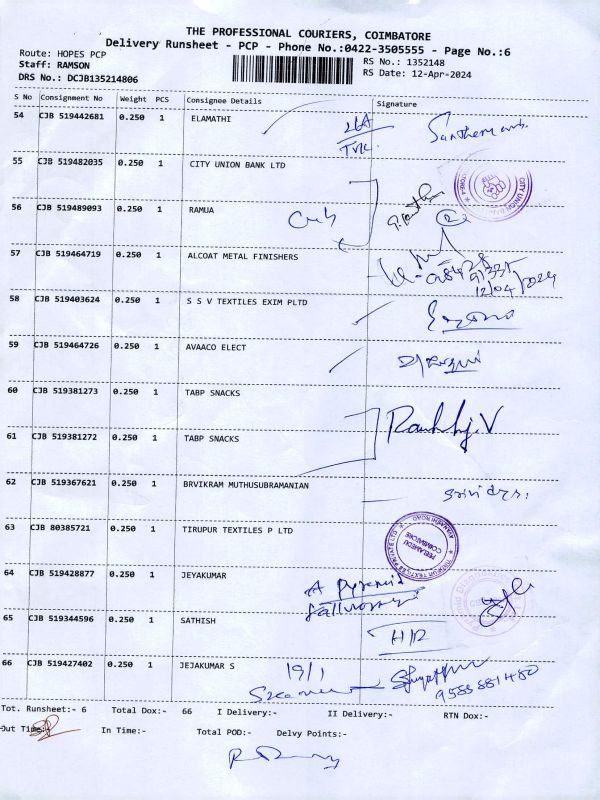 THE PROFESSIONAL COURIERS, COIMBATORE
Delivery Runsheet - PCP - Phone No.:0422-3505555 - Page No.:6
Route: HOPES PCP
Staff: RAMSON
DRS No.: DCJB135214806
RS No.: 1352148
RS Date: 12-Apr-2024
S No Consignment No Weight PCS Consignee Details Signature
54 CJB 519442681 0.250 1 ELAMATHI
55 CJB 519482035 0.250 1 CITY UNION BANK LTD
56 CJB 519489093 0.250 1 RAMUA
57 CJB 519464719 0.250 1 ALCOAT METAL FINISHERS
12/04/2024
58 CJB 519403624 0.250 1 S S V TEXTILES EXIM PLTD
59 CJB 519464726 0.250 1 AVAACO ELECT
60 CJB 519381273 0.250 1 TABP SNACKS
61 CJB 519381272 0.250 1 TABP SNACKS
62 CJB 519367621 0.250 1 BRVIKRAM MUTHUSUBRAMANIAN
63 CJB 80385721 0.250 1 TIRUPUR TEXTILES P LTD
PEELAMEDU
COIMBATORE
64 CJB 519428877 0.250 1 JEYAKUMAR
65 CJB 519344596 0.250 1 SATHISH
66 CJB 519427402 0.250 1 JEJAKUMAR S 19/1
Tot. Runsheet:- 6 Total Dox:- 66 I Delivery:- II Delivery:- RTN Dox:-
Out Time: In Time:- Total POD:- Delvy Points:-